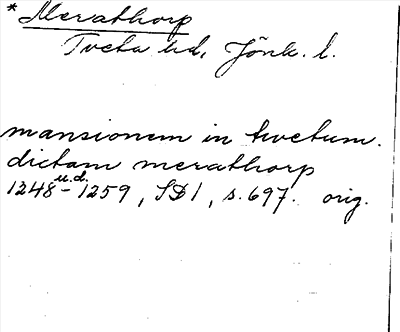 * Merathorp
Tveta hd, Jönk. l.
mansionem in twetum.
dictam merathorp
u.d.
1248 - 1259, SD 1, s. 697. orig.